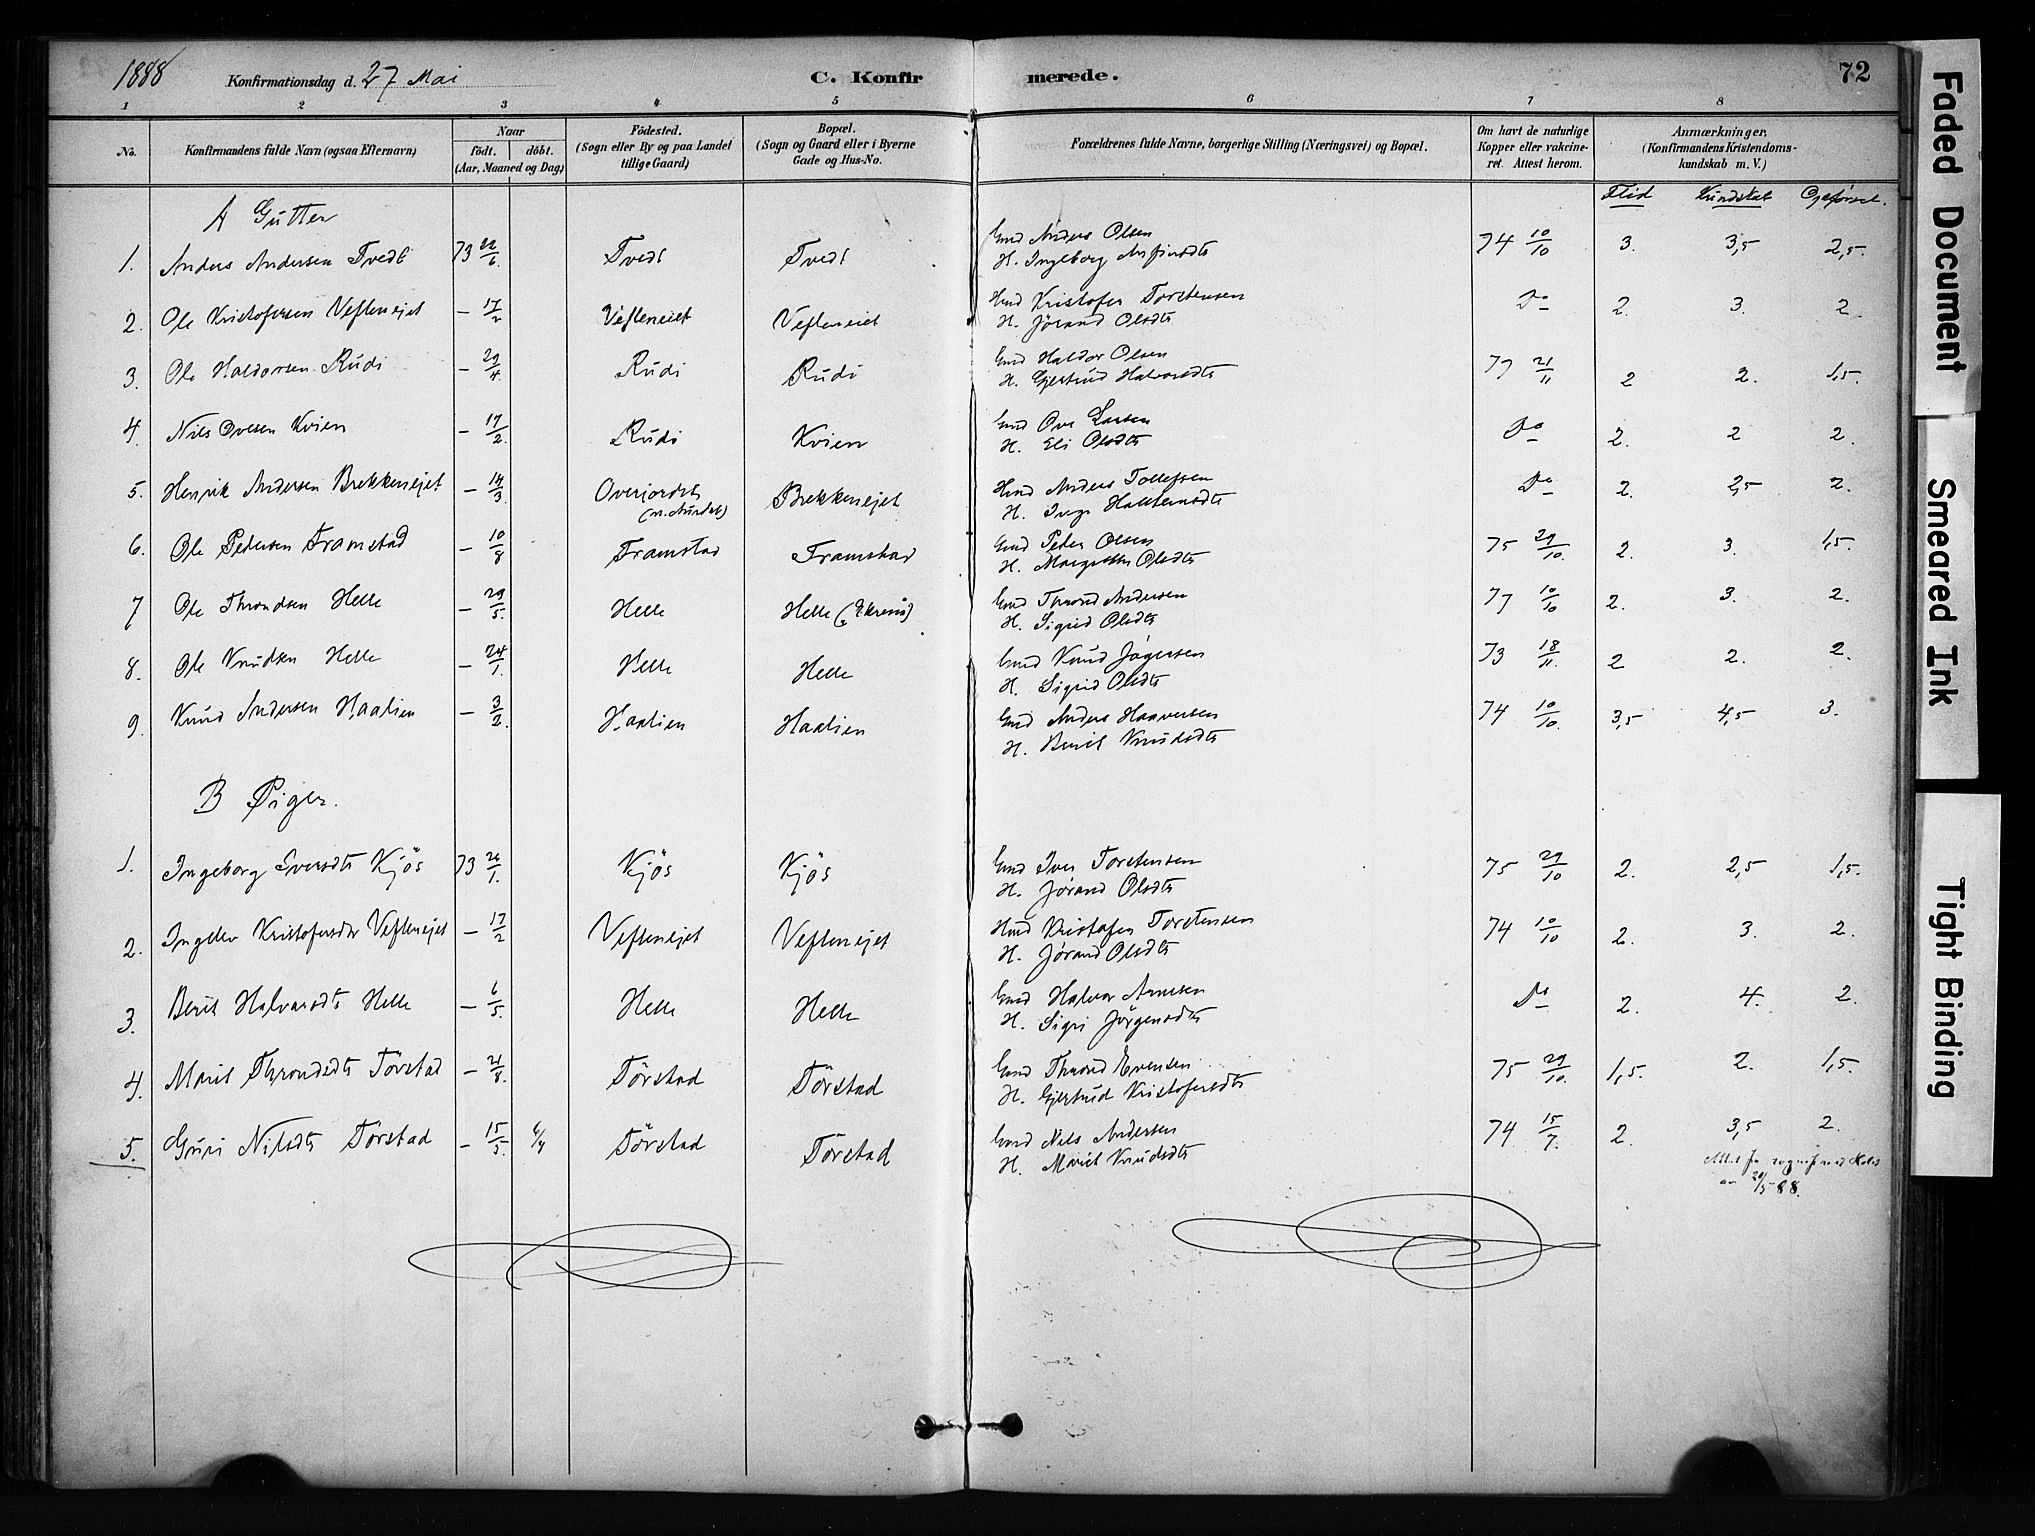 1888 Konfirmationsdag d. 27 Mai C. Konfirmerede. 72
1 2 3 4 5 6 7 8
No. Konfirmandens fulde Navn (ogsaa Efternavn) Naar födt. döbt. (Aar, Maaned og Dag) Födested. (Sogn eller By og paa Landet tillige Gaard) Bopæl. (Sogn og Gaard eller i Byerne Gade og Hus-No. Forældrenes fulde Navne, borgerlige Stilling (Næringsvei) og Bopæl. Om havt de naturlige Kopper eller vakcineret. Attest herom. Anmærkninger. (Konfirmandens Kristendomskundskab m. V.)
Flid Kundskab Opførsel.
A Gutter
1. Anders Andersen Tvedt 73 22/6. Tvedt Tvedt Gmd Anders Olsen 74 10/10 3. 3,5 2,5.
H. Ingeborg Arfinsdtr
2. Ole Kristofersen Veftenejet – 17/2 Vefteneiet Vefteneiet Hmd Kristofer Torstensen Do 2. 3. 2.
H. Jörand Olsdtr
3. Ole Haldorsen Rudi – 29/4. Rudi Rudi Gmd Haldor Olsen 77 21/11 2 2. 1,5.
H. Gjertrud Halvorsdtr
4. Nils Ovesen Kvien – 17/2. Rudi Kvien Gmd Ove Larsen Do 2. 2 2.
H. Eli Olsdtr
5. Henrik Andersen Brekkenejet – 14/3. Overjordet Brekkenejet Hmd Anders Tollefsen Do 2. 2,5 2.
(n. Aurdal) H. Inga Hallstensdtr
6. Ole Pedersen Framstad – 10/8 Framstad Framstad Gmd Peder Olsen 75 29/10. 2. 3. 1,5.
H. Margrethe Olsdtr
7 Ole Throndsen Helle – 29/5. Helle Helle Gmd Thrond Andersen 77 10/10 2. 3. 2.
H. Sigrid Olsdtr
8. Ole Knudsen Helle – 24/1. Helle Helle Gmd Knud Jögersen 73 18/11. 2 2. 2.
H. Sigrid Olsdtr
9. Knud Andersen Haalien – 3/2. Haalien Haalien Gmd Anders Haaversen 74 10/10. 3,5 4,5 3.
H. Berit Knudsdtr
B Piger.
1. Ingeborg Iversdtr Kjös 73 26/1. Kjös Kjös Gmd Iver Torstensen 75 29/10 2. 2,5 1,5.
H. Jörand Olsdtr
2. Ingelev Kristofersdtr Veftenejet – 17/2 Veftenejet Veftenejet Hmd Kristofer Torstensen 74 10/10 2. 3. 2.
H. Jörand Olsdtr
3. Berit Halvorsdtr Helle – 6/5. Helle Helle Gmd Halvor Arnesen Do 2. 4. 2.
H. Sigri Jörgensdtr
4. Marit Throndsdtr Törstad – 21/8. Törstad Törstad Gmd Thrond Evensen 75 29/10. 1,5. 2. 1,5.
H. Gjertrud Kristofersdtr
5. Guri Nilsdtr Törstad – 15/5. 6/4 Törstad Törstad Gmd Nils Andersen 74 15/7. 2. 3,5 2.
H. Marit Knudsdtr Attest fra sognepræst
20/5 88.
Faded Document
Smeared Ink
Tight Binding